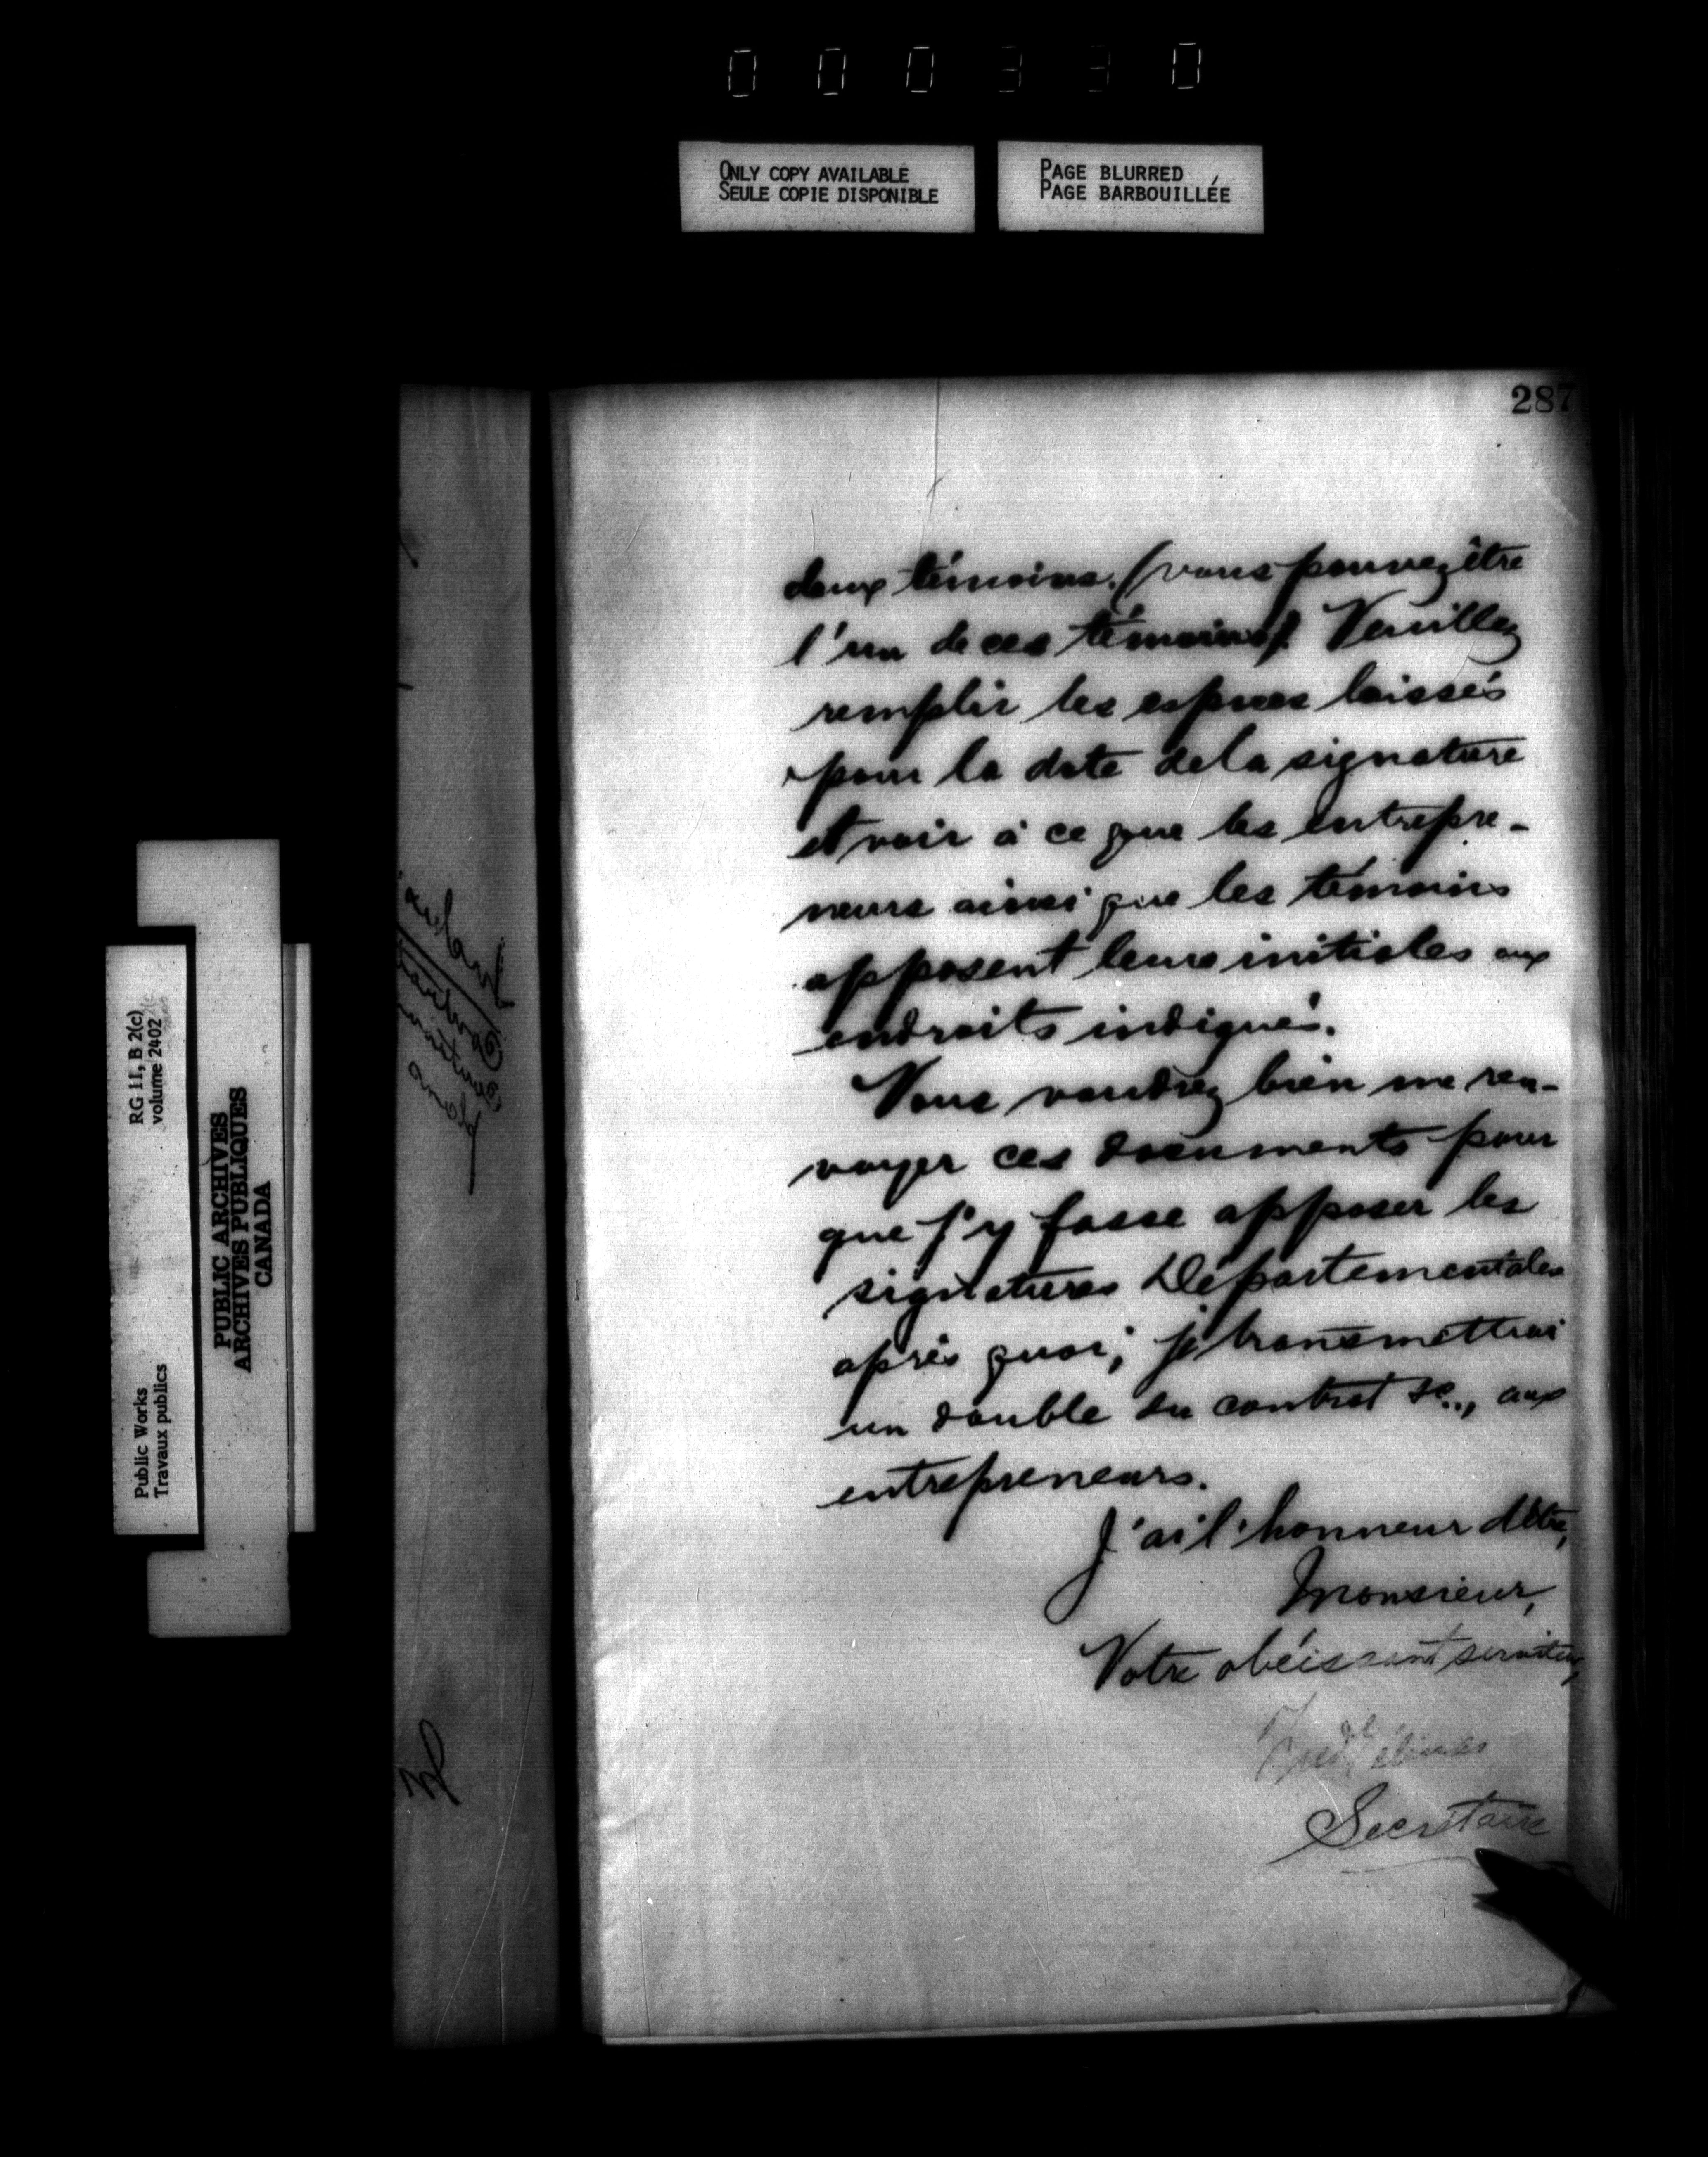 000330
ONLY COPY AVAILABLE
SEULE COPIE DISPONIBLE
PAGE BLURRED
PAGE BARBOUILLÉE
287
deux témoins. (vous pouvez être
l'un de ces témoins). Veuillez
remplir les espaces laissés
pour la date de la signature
et voir à ce que les entrepre-
neurs ainsi que les témoins
apposent leurs initiales aux
endroits indiqués.
Vous voudrez bien me ren-
voyer ces documents pour
que j'y fasse apposer les
signatures Départementales
après quoi, je transmettrai
un double du contrat &c., aux
entrepreneurs.
J'ai l'honneur d'être,
Monsieur,
Votre obéissant serviteur,
Fred Gélinas
Secrétaire
RG 11, B 2(c)
volume 2402
Public Works
Travaux publics
PUBLIC ARCHIVES
ARCHIVES PUBLIQUES
CANADA